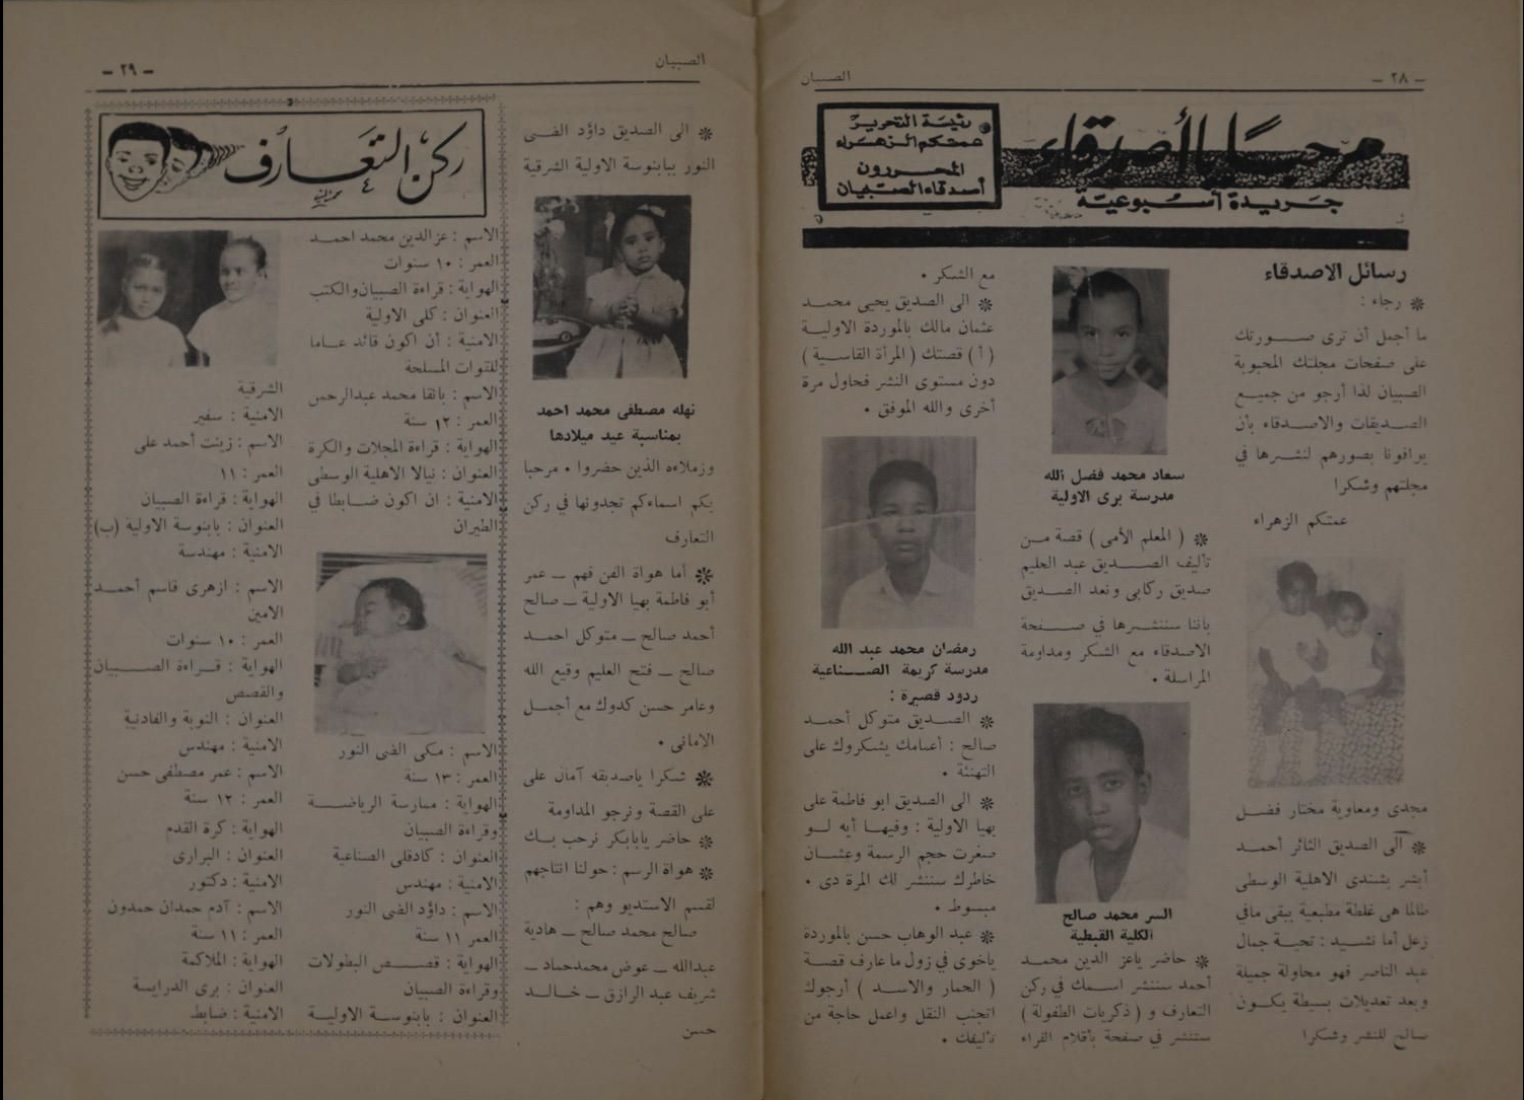 - ٢٨ -
الصبيان
مرحبًا أصدقاء
جريدة أسبوعية
رئيسة التحرير
عمتكم الزهراء
المحررون
أصدقاء الصبيان
رسائل الاصدقاء
❊ رجاء :
ما أجمل أن ترى صورتك
على صفحات مجلتك المحبوبة
الصبيان لذا أرجو من جميع
الصديقات والاصدقاء بأن
يرافونا بصورهم لنشرها في
مجلتهم وشكرا
عمتكم الزهراء
مجدى ومعاوية مختار فضل
❊ الى الصديق الثائر أحمد
أبشر بشندى الاهلية الوسطى
طالما هى غلطة مطبعية يبقى مافي
زعل أما نشيد : تحية جمال
عبد الناصر فهو محاولة جميلة
وبعد تعديلات بسيطة يكون
صالح للنشر وشكرا
سعاد محمد فضل الله
مدرسة برى الاولية
❊ ( المعلم الأمى ) قصة من
تأليف الصديق عبد الحليم
صديق ركابى ونعد الصديق
باننا سننشرها في صفحة
الاصدقاء مع الشكر ومداومة
المراسلة .
السر محمد صالح
الكلية القبطية
❊ حاضر ياعز الدين محمد
أحمد سننشر اسمك في ركن
التعارف و ( ذكريات الطفولة )
ستنشر في صفحة بأقلام القراء
مع الشكر .
❊ الى الصديق يحيى محمد
عثمان مالك بالموردة الاولية
( أ ) قصتك ( المرأة القاسية )
دون مستوى النشر فحاول مرة
أخرى والله الموفق .
رمضان محمد عبد الله
مدرسة كريمة الصناعية
ردود قصيرة :
❊ الصديق متوكل أحمد
صالح : أعمامك يشكروك على
التهنئة .
❊ الى الصديق ابو فاطمة على
بهيا الاولية : وفيها أيه لو
صغرت حجم الرسمة وعشان
خاطرك سننشر لك المرة دى .
مبسوط .
❊ عبد الوهاب حسن بالموردة
ياخوى في زول ما عارف قصة
( الحمار والاسد ) أرجوك
اتجنب النقل واعمل حاجة من
تأليفك .
الصبيان
- ٢٩ -
❊ الى الصديق داؤد الفى
النور ببابنوسة الاولية الشرقية
نهله مصطفى محمد احمد
بمناسبة عيد ميلادها
وزملاءه الذين حضروا . مرحبا
بكم اسماءكم تجدونها في ركن
التعارف
❊ أما هواة الفن فهم ــ عمر
أبو فاطمة بهيا الاولية ــ صالح
أحمد صالح ــ متوكل احمد
صالح ــ فتح العليم وقيع الله
وعامر حسن كدوك مع أجمل
الامانى .
❊ شكرا ياصديقه آمال على
على القصة ونرجو المداومة
❊ حاضر يابابكر نرحب بك
❊ هواة الرسم : حولنا انتاجهم
لقسم الاستديو وهم :
صالح محمد صالح ــ هادية
عبدالله ــ عوض محمدحماد ــ
شريف عبد الرازق ــ خالد
حسن
ركن التعارف
الاسم : عزالدين محمد احمد
العمر : ١٠ سنوات
الهواية : قراءة الصبيان والكتب
العنوان : كلى الاولية
الامنية : أن اكون قائد عاما
للقوات المسلحة
الاسم : بانقا محمد عبدالرحمن
العمر : ١٢ سنة
الهواية : قراءة المجلات والكرة
العنوان : نيالا الاهلية الوسطى
الامنية : ان اكون ضابطا في
الطيران
الاسم : مكى الفى النور
العمر : ١٣ سنة
الهواية : ممارسة الرياضة
وقراءة الصبيان
العنوان : كادقلى الصناعية
الامنية : مهندس
الاسم : داؤد الفى النور
العمر ١١ سنة
الهواية : قصص البطولات
وقراءة الصبيان
العنوان : بابنوسة الاولية
الشرقية
الامنية : سفير
الاسم : زينت أحمد على
العمر : ١١
الهواية : قراءة الصبيان
العنوان : بابنوسة الاولية (ب)
الامنية : مهندسة
الاسم : ازهرى قاسم أحمد
الامين
العمر : ١٠ سنوات
الهواية : قراءة الصبيان
والقصص
العنوان : النوبة والفادنية
الامنية : مهندس
الاسم : عمر مصطفى حسن
العمر : ١٢ سنة
الهواية : كرة القدم
العنوان : البرارى
الامنية : دكتور
الاسم : آدم حمدان حمدون
العمر : ١١ سنة
الهواية : الملاكمة
العنوان : برى الدرايسة
الامنية : ضابط